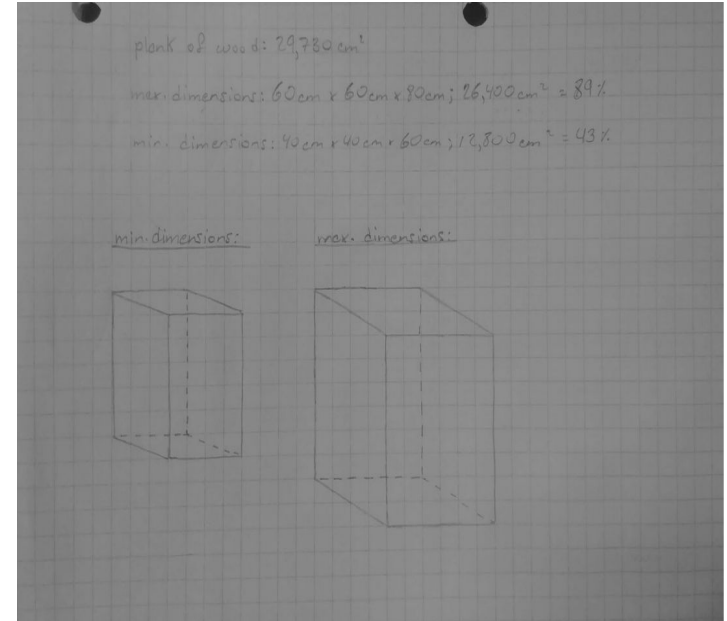 plank of wood: 29,780 cm²
max. dimensions: 60cm x 60cm x 80cm; 26,400 cm² = 89%
min. dimensions: 40cm x 40cm x 60cm; 12,800 cm² = 43%
min. dimensions: max. dimensions: